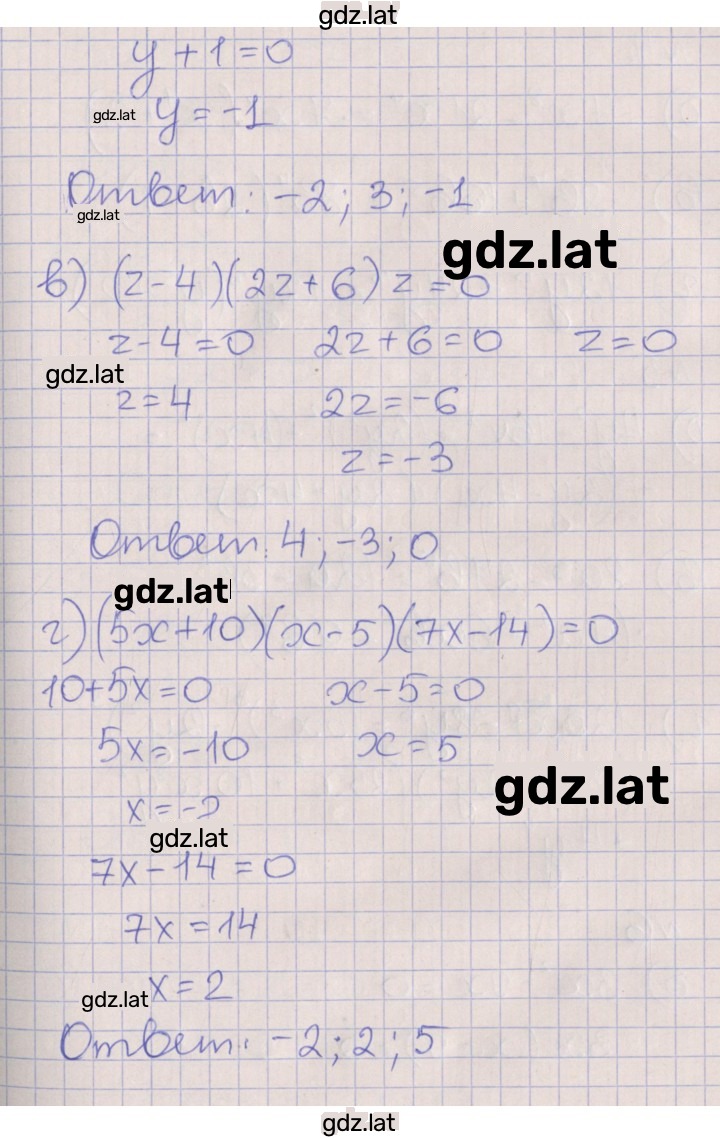 gdz.lat
y + 1 = 0
gdz.lat y = -1
Ответ: -2; 3; -1
gdz.lat
gdz.lat
в) (z - 4)(2z + 6) z = 0
z - 4 = 0 2z + 6 = 0 z = 0
gdz.lat
z = 4 2z = -6
z = -3
Ответ: 4; -3; 0
gdz.lat
г) (5x + 10)(x - 5)(7x - 14) = 0
10 + 5x = 0 x - 5 = 0
5x = -10 x = 5
gdz.lat
x = -2
gdz.lat
7x - 14 = 0
7x = 14
gdz.lat x = 2
Ответ: -2; 2; 5
gdz.lat